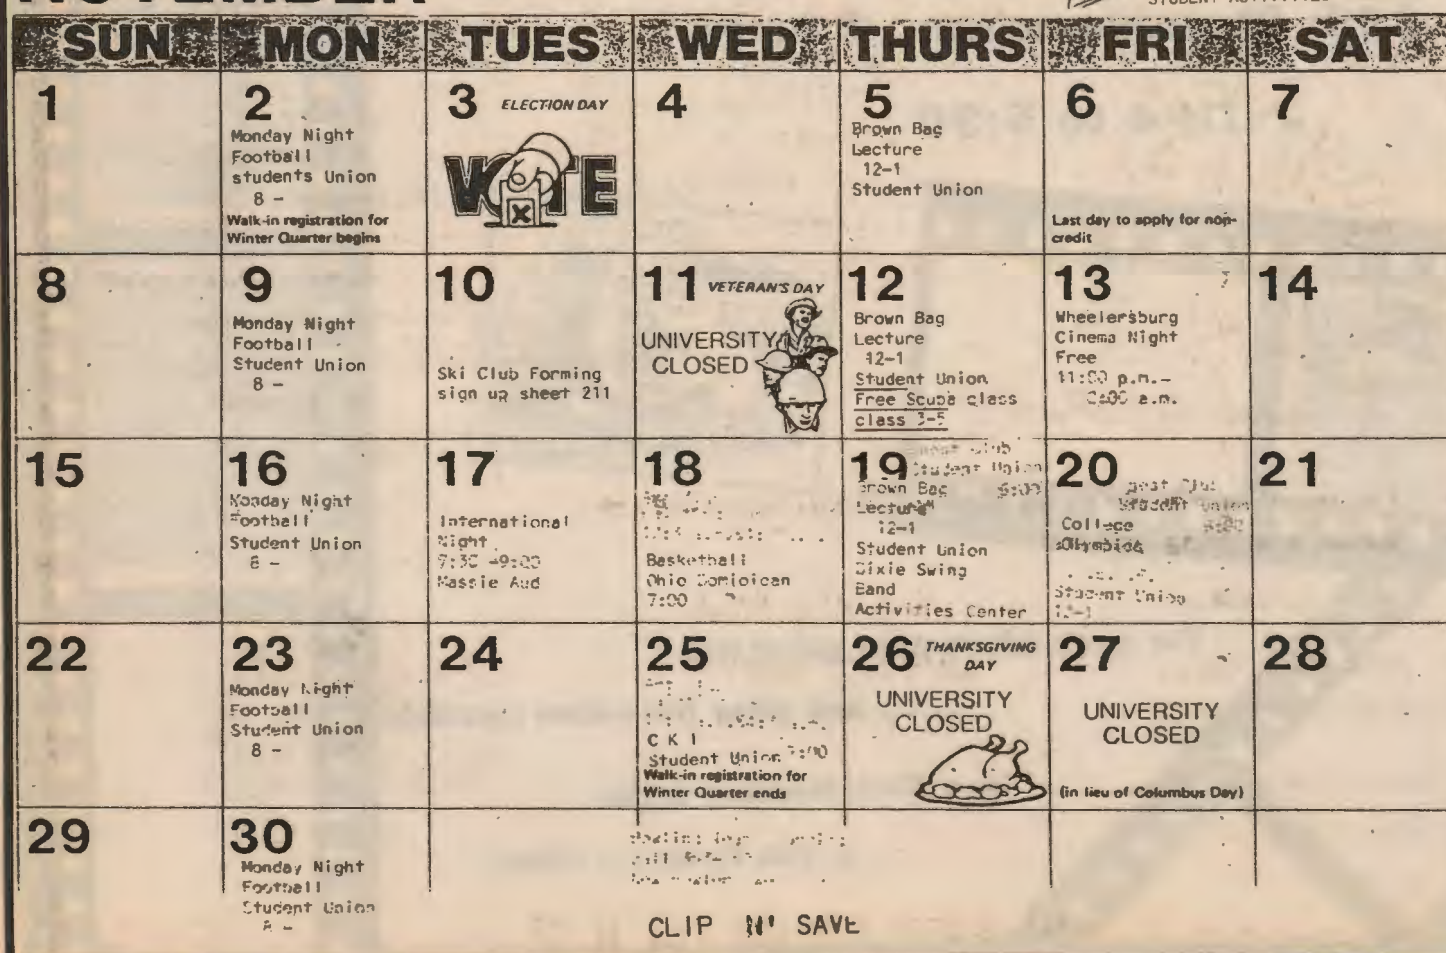 NOVEMBER
STUDENT ACTIVITIES
SUN MON TUES WED THURS FRI SAT
1
2
Monday Night
Football
students Union
8 -
Walk-in registration for
Winter Quarter begins
3 ELECTION DAY
VOTE
4
5
Brown Bag
Lecture
12-1
Student Union
6
Last day to apply for non-
credit
7
8
9
Monday Night
Football
Student Union
8 -
10
Ski Club Forming
sign up sheet 211
11 VETERAN'S DAY
UNIVERSITY
CLOSED
12
Brown Bag
Lecture
12-1
Student Union
Free Scuba class
class 3-5
13
Wheelersburg
Cinema Night
Free
11:00 p.m.-
2:00 a.m.
14
15
16
Monday Night
Football
Student Union
8 -
17
International
Night
7:30 -9:00
Massie Aud
18
Basketball
Ohio Dominican
7:00
19
Club
Student Union
Brown Bag 6:00
Lecture
12-1
Student Union
Dixie Swing
Band
Activities Center
20
Student Union
College
Olympics
Student Union
12-1
21
22
23
Monday Night
Football
Student Union
8 -
24
25
C K I
Student Union 7:00
Walk-in registration for
Winter Quarter ends
26 THANKSGIVING
DAY
UNIVERSITY
CLOSED
27
UNIVERSITY
CLOSED
(in lieu of Columbus Day)
28
29
30
Monday Night
Football
Student Union
8 -
CLIP N' SAVE